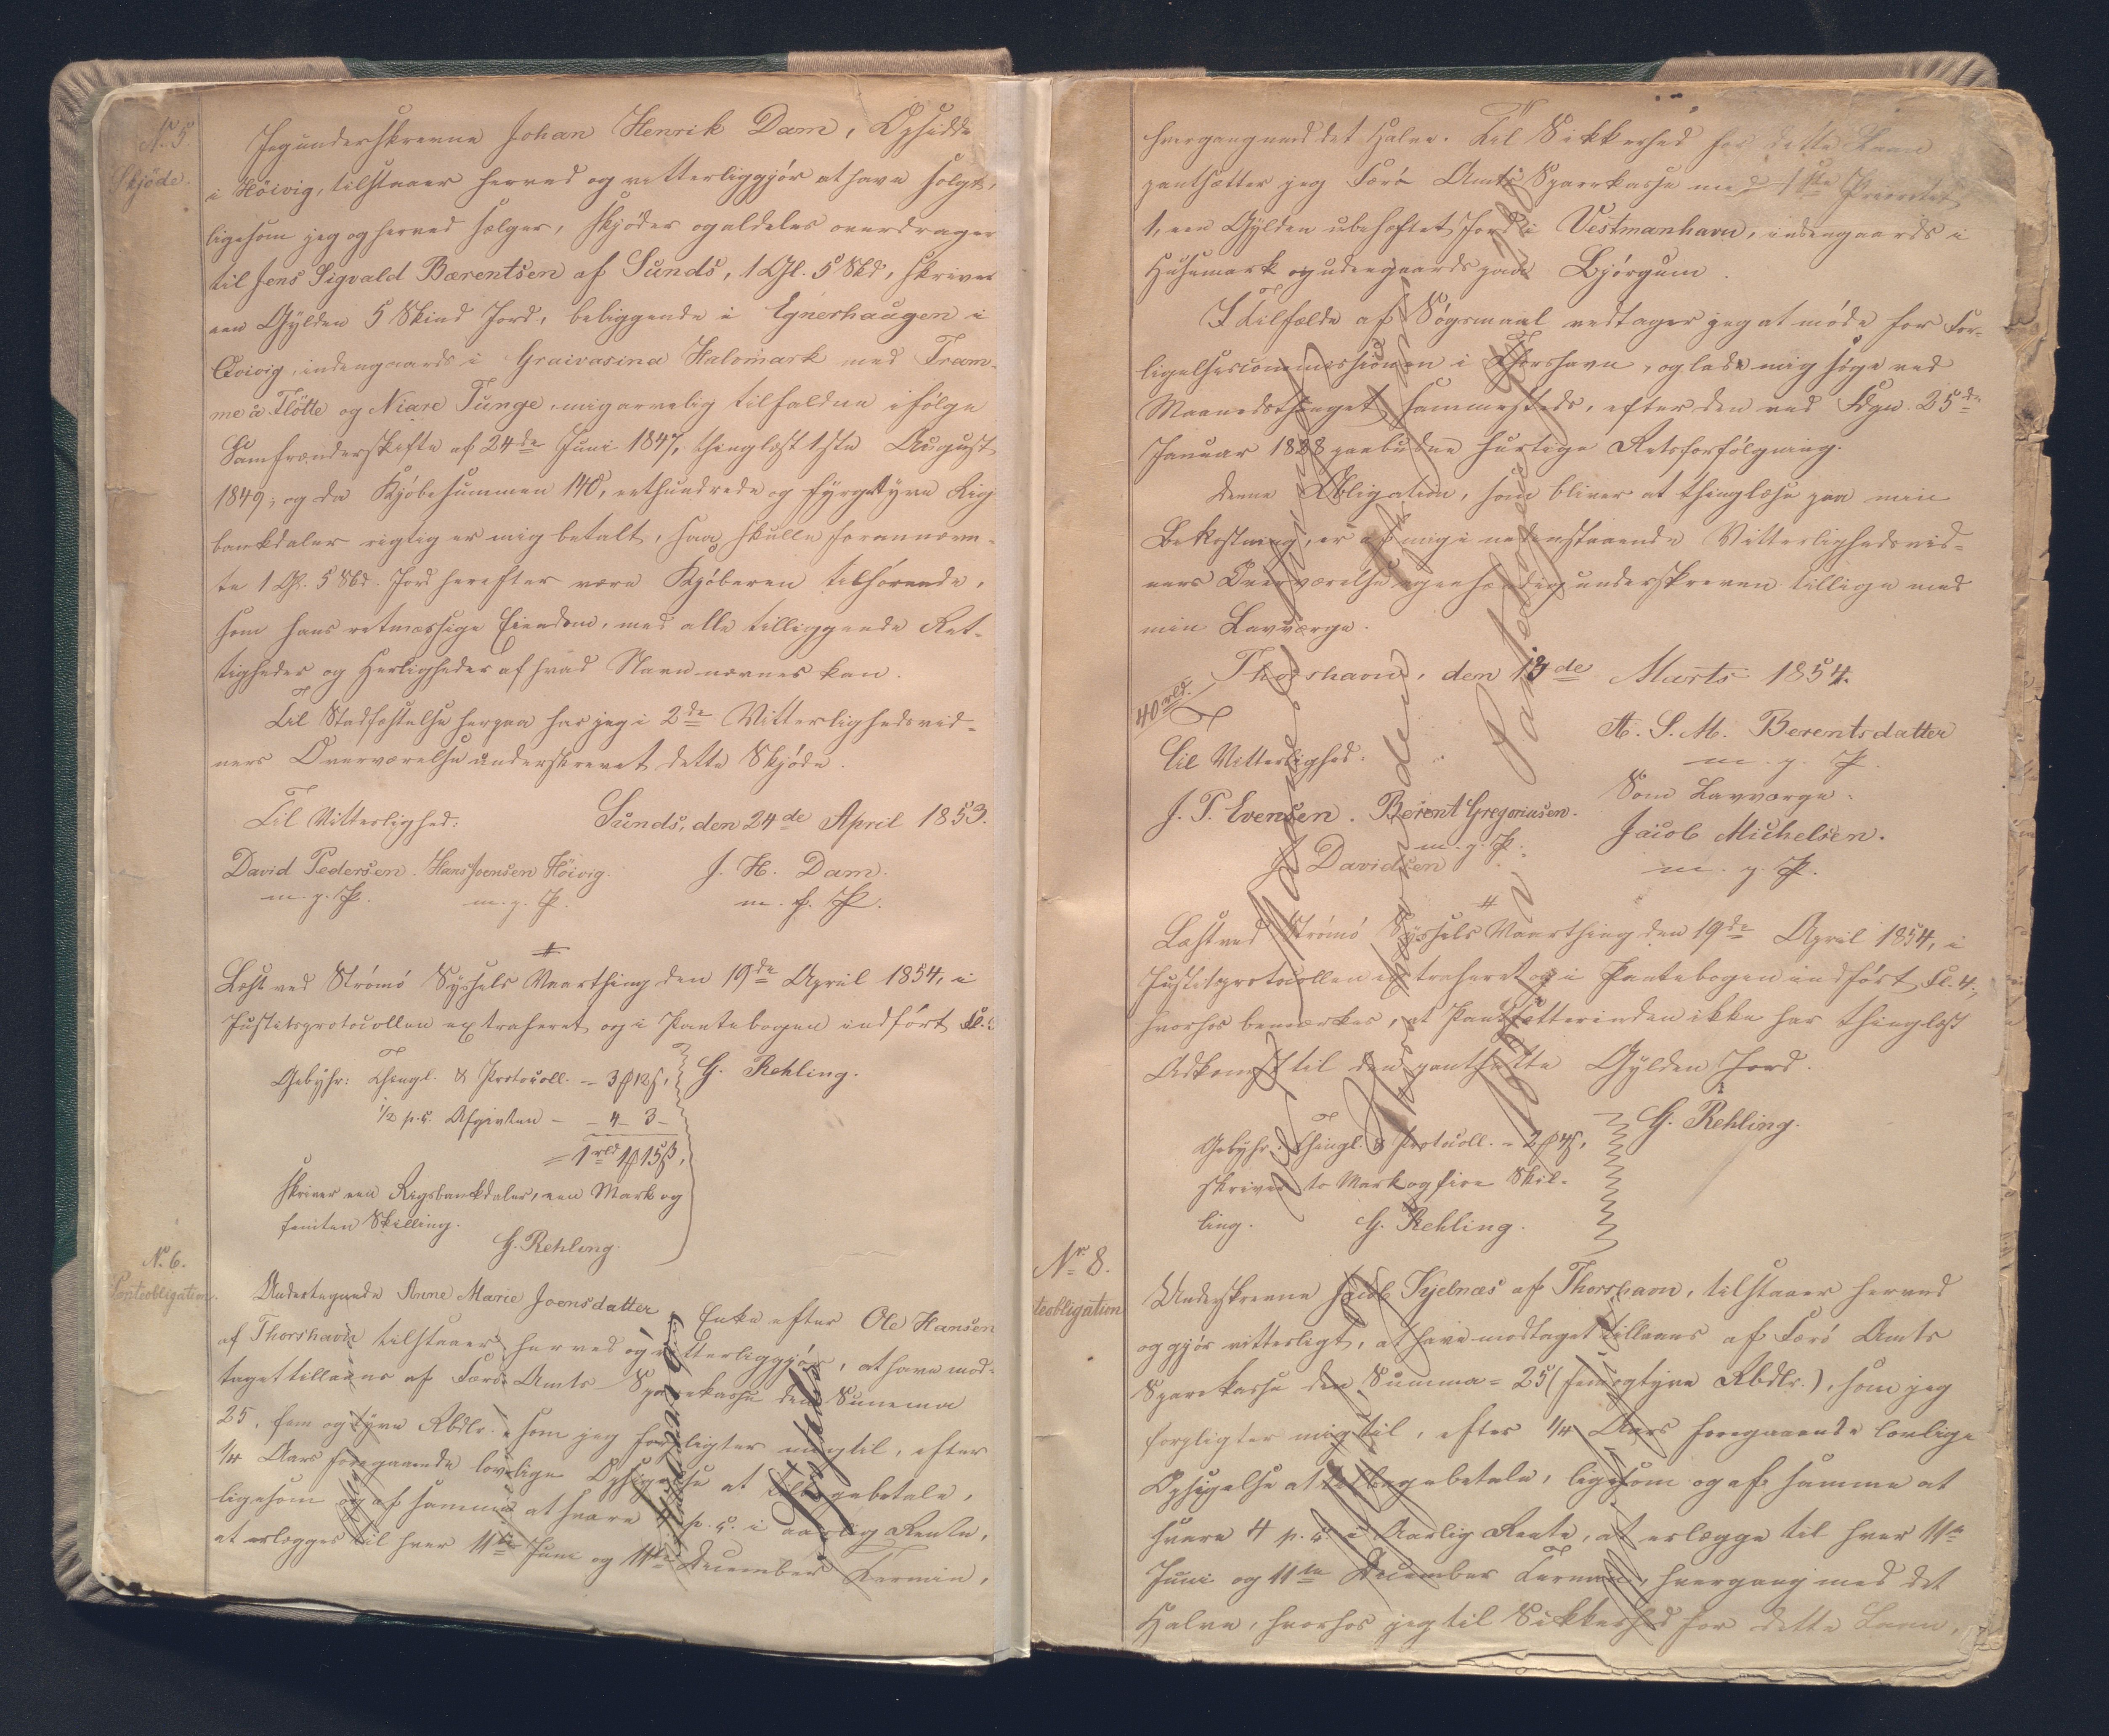 N. 5
Skjöde.
Jeg underskrevne Johan Henrik Dam, Opsidder
i Höivig, tilstaaer herved og vitterliggjör at have solgt,
ligesom jeg og herved sælger, skjöder og aldeles overdrager
til Jens Sigvald Bærentsen af Sunds, 1 Gl. 5 Skd, skriver
een Gylden 5 Skind Jord, beliggende i Egnerhaugen i
Qvivig, indengaards i Graivasina Halomark med Fram-
me à Flötte og Niare Tunge, mig arvelig tilfalden ifölge
Samfrænderskifte af 24de Juni 1847, thinglæst 1ste August
1849; og da Kjöbesummen 140, eethundrede og fyrgetyve Rigs
bankdaler rigtig er mig betalt, saa skulle forannævn-
te 1 Gl. 5 Skd. Jord herefter være Kjöberen tilhörende,
som hans retmæssige Eiendom, med alle tilliggende Ret-
tigheder og Herligheder af hvad Navn nævnes kan.
Til Stadfæstelse herpaa har jeg i 2de Vitterlighedsvid-
ners Overværelse underskrevet dette Skjöde.
Sunds, den 24de April 1853.
Til Vitterlighed:
David Pedersen. Hans Joensen Höivig. J. H. Dam.
m. g. P. m. g. P. m. f. P.
Læst ved Strömö Syssels Vaarthing den 19de April 1854, i
Justitsprotocollen extraheret og i Pantebogen indfört Fl.
Gebyhr: Thingl. & Protocoll. = 3 12 G. Rehling.
1/2 p. c. Afgivten - - 4 - 3 -
= 1 rbd 1 15
skriver een Rigsbankdaler, een Mark og
femten Skilling.
G. Rehling.
N. 6.
Panteobligation.
Undertegnede Anne Marie Joensdatter, Enke efter Ole Hansen
af Thorshavn tilstaaer herved og vitterliggjör, at have mod-
taget tillaans af Færö Amts Sparekasse den Summa
25, fem og tyve Rbdlr., som jeg forpligter mig til, efter
1/4 Aars foregaaende lovlige Opsigelse at tilbagebetale,
ligesom og af samme at svare 4 p. c. i aarlig Rente,
at erlægges til hver 11te Juni og 11te December Termin,
hvergang med det Halve. Til Sikkerhed for dette Laan
pantsætter jeg Færö Amts Sparekasse med 1ste Prioritet
1, een Gylden ubehæftet Jord i Vestmanhavn, indengaards i
Husemark og udengaards paa Bjórgum.
I Tilfælde af Sögsmaal vedtager jeg at möde for For-
ligelsescommissionen i Thorshavn, og lade mig söge ved
Maanedsthinget sammesteds, efter den ved Fdgn. 25de
Januar 1828 paabudne hurtige Retsforfölgning.
Denne Obligation, som bliver at thinglæse paa min
Bekostning, er af mig i nedenstaaende Vitterlighedsvid-
ners Overværelse egenhændig underskreven tillige med
min Lavværge.
Thorshavn, den 13de Marts 1854.
40 rbd.
A. S. M. Berentsdatter
m. g. P.
Til Vitterlighed:
Som Lavværge:
J. P. Evensen. Berent Gregoriusen. Jacob Michelsen.
J. Davidsen m. g. P. m. g. P.
Læst ved Strömö Syssels Vaarthing den 19de April 1854, i
Justitsprotocollen extraheret og i Pantebogen indfört Fl. 4,
hvorhos bemærkes, at Pantsætterinden ikke har thinglæst
Adkomst til den pantsatte Gylden Jord.
G. Rehling.
Gebyhr: Thingl. & Protocoll. = 2 4
skriver to Mark og fire Skil-
ling. G. Rehling.
Nr. 8.
teobligation
Underskrevne Jacob Kjelnæs af Thorshavn, tilstaaer herved
og gjör vitterligt, at have modtaget tillaans af Færö Amts
Sparekasse den Summa = 25 (fem og tyve Rbdlr.), som jeg
forpligter mig til, efter 1/4 Aars foregaaende lovlige
Opsigelse at tilbagebetale, ligesom og af samme at
svare 4 p. c. i Aarlig Rente, at erlægge til hver 11te
Juni og 11te December Termin, hvergang med det
Halve, hvorhos jeg til Sikkerhed for dette Laan,